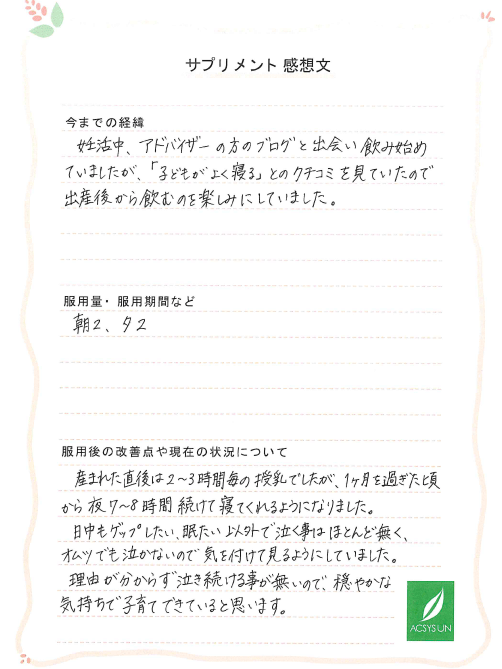 サプリメント 感想文
今までの経緯
妊活中、アドバイザーの方のブログと出会い飲み始め
ていましたが、「子どもがよく寝る」とのクチコミを見ていたので
出産後から飲むのを楽しみにしていました。
服用量・服用期間など
朝2、夕2
服用後の改善点や現在の状況について
産まれた直後は2~3時間毎の授乳でしたが、1ヶ月を過ぎた頃
から夜7~8時間続けて寝てくれるようになりました。
日中もゲップしたい、眠たい以外で泣く事はほとんど無く、
オムツでも泣かないので気を付けて見るようにしていました。
理由が分からず泣き続ける事が無いので、穏やかな
気持ちで子育てできていると思います。
ACSYSUN